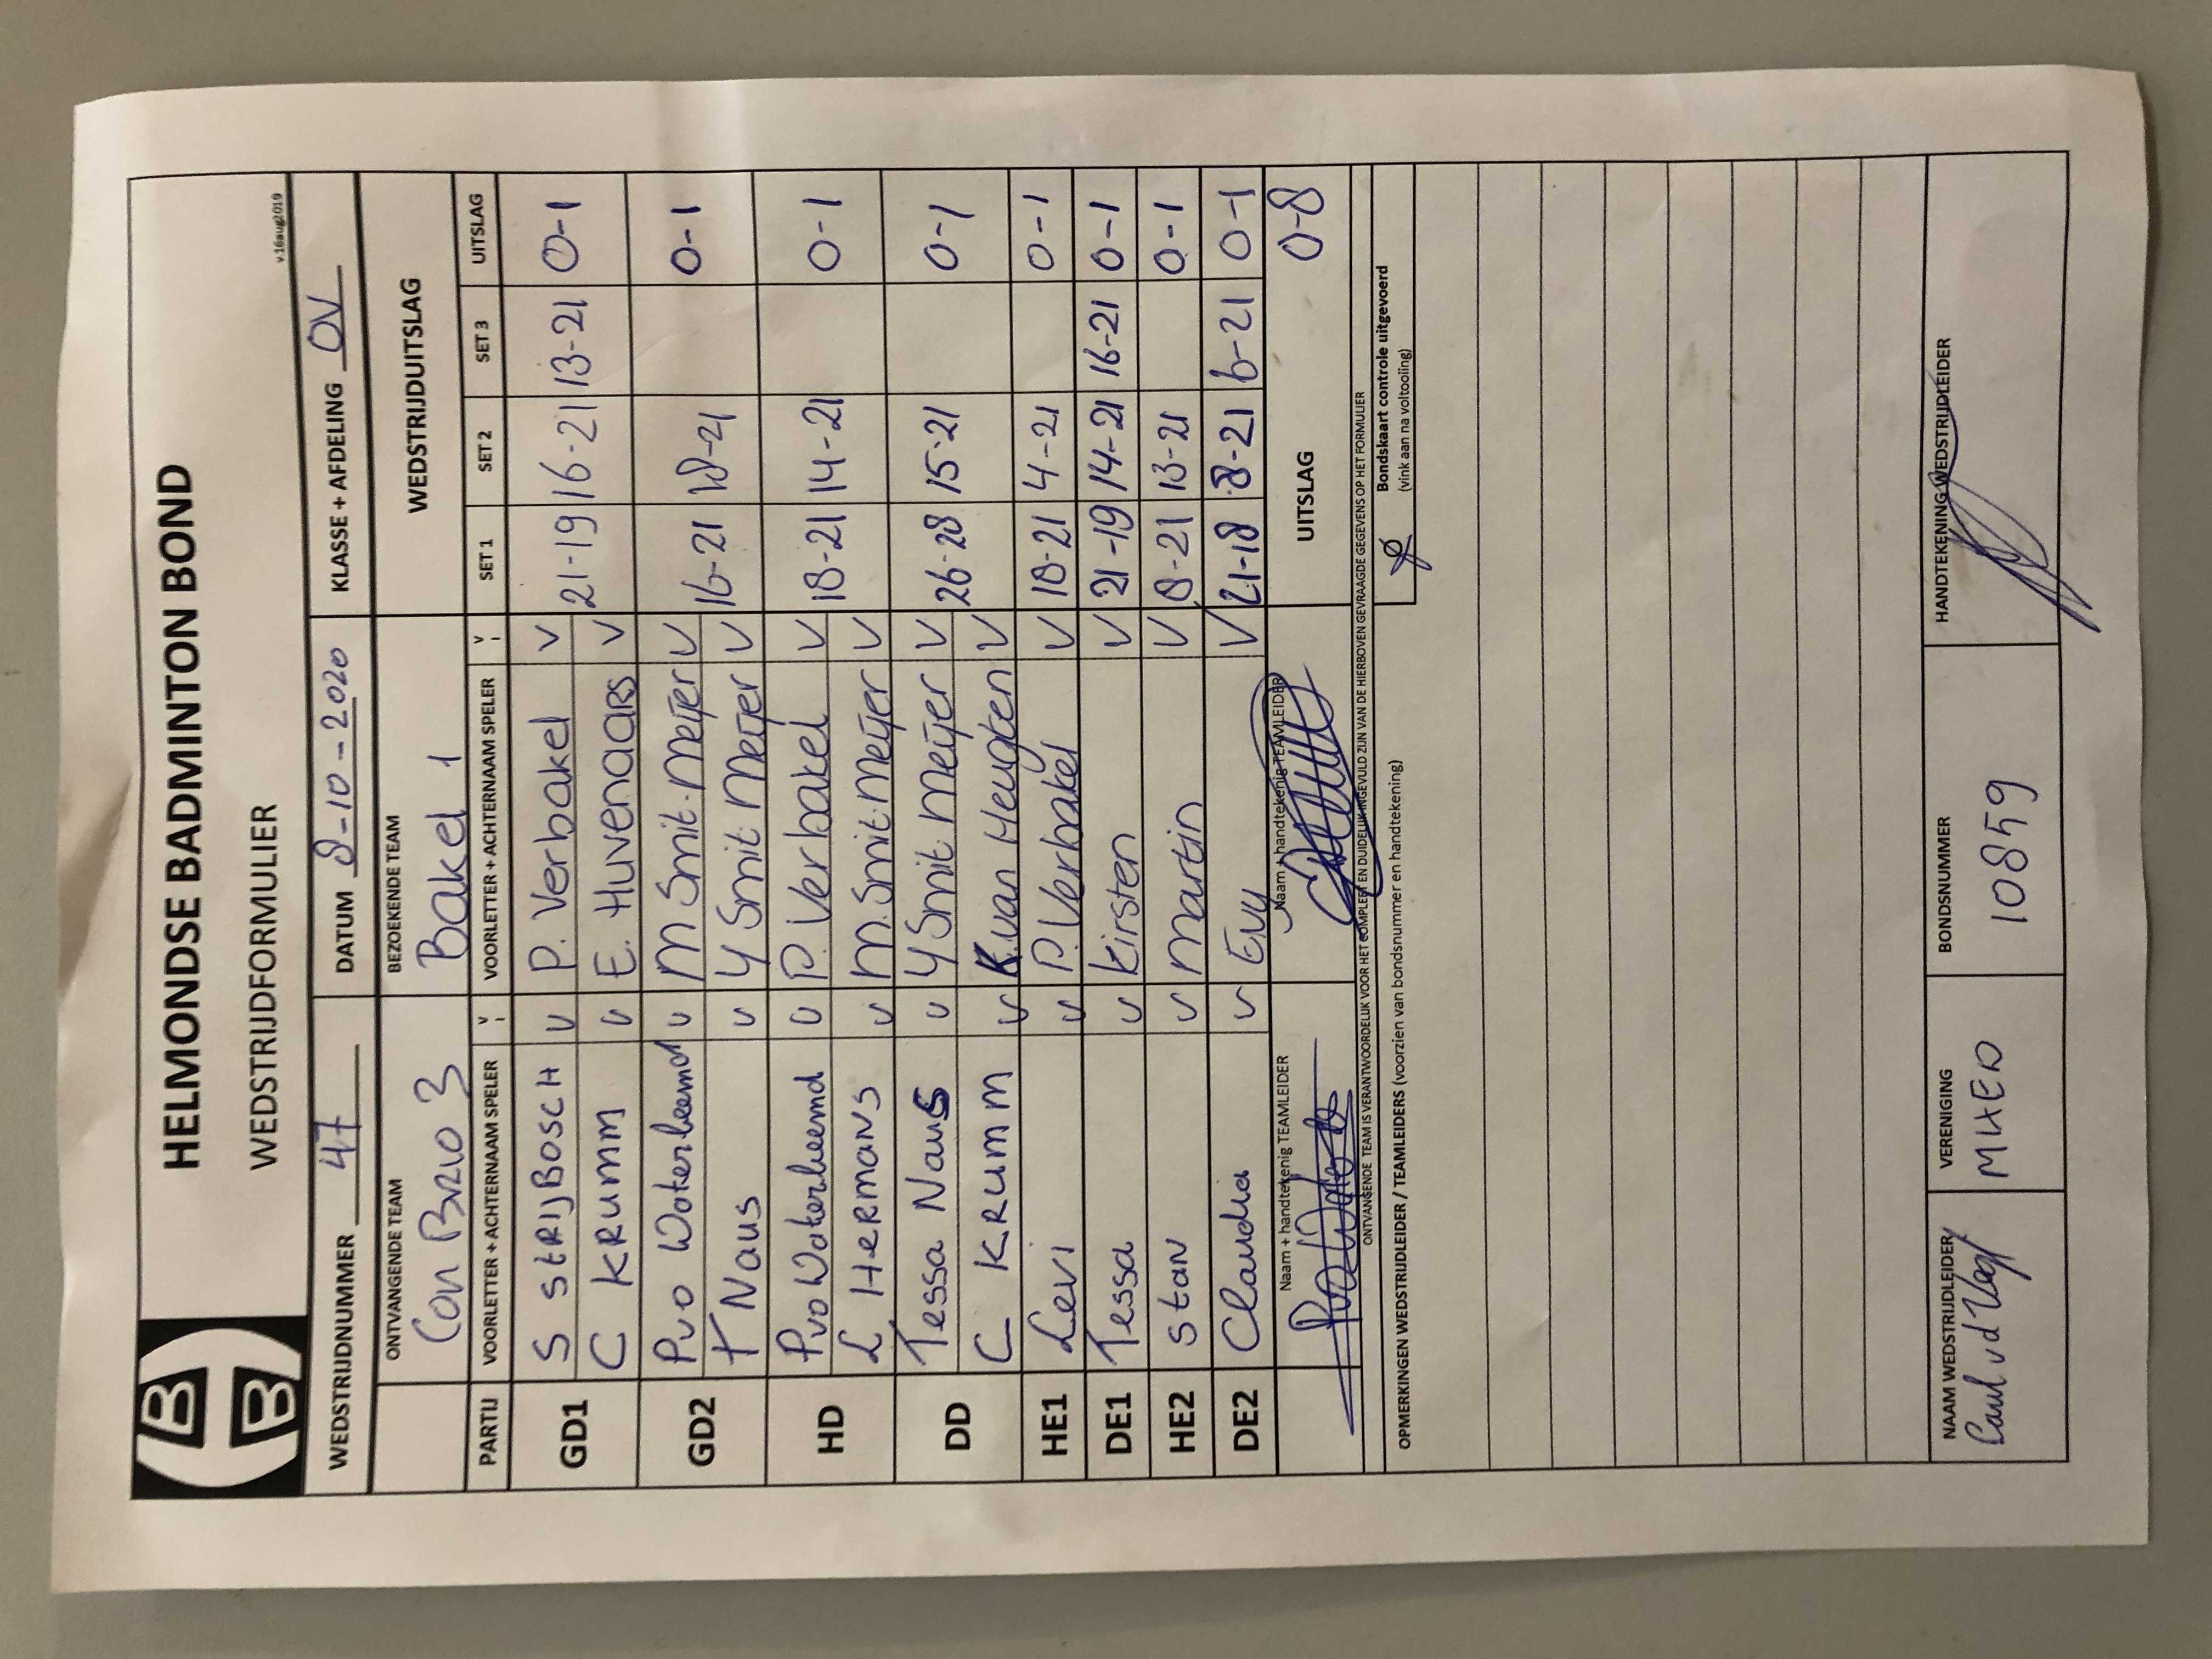 HELMONDSE BADMINTON BOND
WEDSTRIJDFORMULIER
v.16aug2019
WEDSTRIJDNUMMER 47 DATUM 9-10-2020 KLASSE + AFDELING OV
ONTVANGENDE TEAM BEZOEKENDE TEAM WEDSTRIJDUITSLAG
Con Brio 3 Bakel 1
PARTIJ VOORLETTER + ACHTERNAAM SPELER V VOORLETTER + ACHTERNAAM SPELER V SET 1 SET 2 SET 3 UITSLAG
GD1 S StRIJBOSCH v P. Verbakel v 21-19 16-21 13-21 0-1
C KRUMM v E. Huvenaars v
GD2 P vo Waterbeemd v M Smit-Meijer v 16-21 18-21 0-1
T Naus v Y Smit Meijer v
HD P vo Waterbeemd v P. Verbakel v 18-21 14-21 0-1
L HERMANS v M. Smit-Meijer v
DD Tessa Naus v Y Smit Meijer v 26-28 15-21 0-1
C KRUMM v K. van Heugten v
HE1 Levi v P. Verbakel v 18-21 4-21 0-1
DE1 Tessa v Kirsten v 21-19 14-21 16-21 0-1
HE2 Stan v Martin v 8-21 13-21 0-1
DE2 Claudia v Evy v 21-18 8-21 6-21 0-1
Naam + handtekenig TEAMLEIDER Naam + handtekenig TEAMLEIDER UITSLAG 0-8
ONTVANGENDE TEAM IS VERANTWOORDELIJK VOOR HET COMPLEET EN DUIDELIJK INGEVULD ZIJN VAN DE HIERBOVEN GEVRAAGDE GEGEVENS OP HET FORMULIER
OPMERKINGEN WEDSTRIJDLEIDER / TEAMLEIDERS (voorzien van bondsnummer en handtekening)
Bondskaart controle uitgevoerd
(vink aan na voltooling)
NAAM WEDSTRIJDLEIDER VERENIGING BONDSNUMMER HANDTEKENING WEDSTRIJDLEIDER
Paul vd MIXED 10859